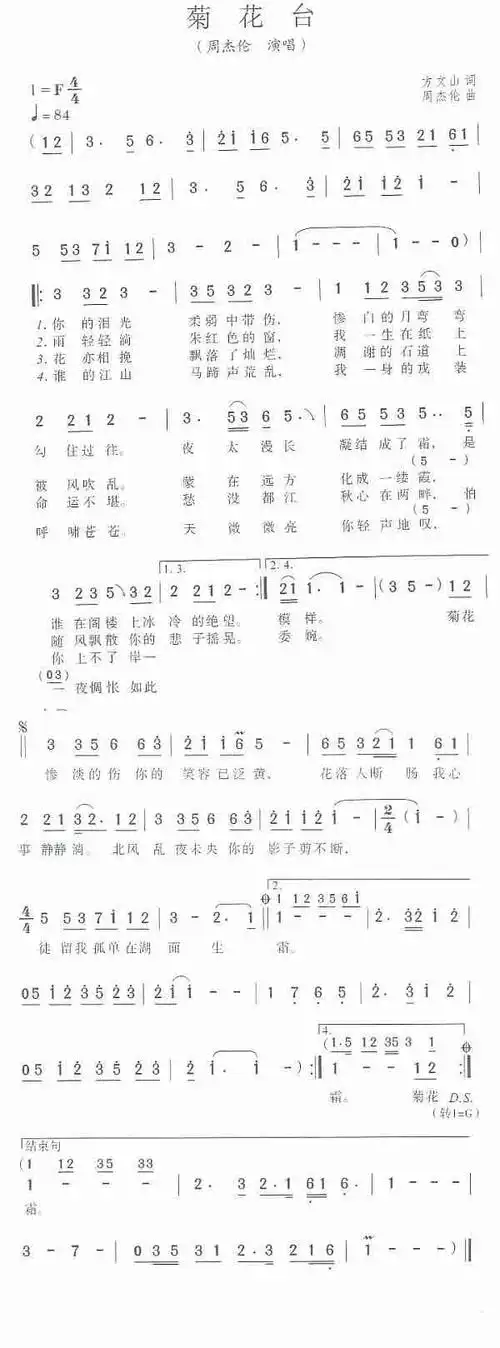 菊花台
（周杰伦 演唱）
1=F 4/4
方文山 词
♩=84
周杰伦 曲
(12 | 3. 5 6. 3̇ | 2̇i i6 5. 5 | 65 53 21 61 |
32 13 2 12 | 3. 5 6. 3̇ | 2̇i i2̇ i - |
5 53 7i 12 | 3 - 2 - | 1 - - - | 1 - - 0)
‖: 3 3 23 - | 35 323 - | 1 12 353 3 |
1.你 的泪光 柔弱中带伤， 惨 白的月弯 弯
2.雨 轻轻淌 朱红色的窗， 我 一生在纸 上
3.花 亦相挽 飘落了灿烂， 凋 谢的石道 上
4.谁 的江山 马蹄声荒乱， 我 一身的戎 装
2 212 - | 3. 53 6 5.↘ | 65 535 - .. 5 |
勾 住过往。 夜 太漫长 凝结成了霜， 是
(5 -)
被 风吹乱。 蒙 在远方 化成一缕霞，
命 运不堪。 愁 没都江 秋心在两畔， 怕
(5 -)
呼 啸苍苍。 天 微微亮 你轻声地叹，
1.3. 2.4.
3 235↘32 | 2 212 - :‖ 21 1. 1 - | (3 5 -) 12 |
谁 在阁楼 上冰 冷的绝望。 模 样。 菊花
随 风飘散 你的 悲 子摇晃。 委 婉。
你 上不了 岸一
(03)
一 夜惆怅 如此
𝄋
‖ 3 356 63̇ | 2̇i i6 5 - | 65 321 1 61 |
惨 淡的伤 你的 笑容已泛黄， 花落人断 肠 我心
2 21 32. 12 | 3 356 63̇ | 2̇i i2̇ i - | 2/4 (i -) |
事 静静淌。 北风 乱 夜未央 你的 影子剪不断，
2.
𝄌 1 123561
4/4 5 537i 12 | 3 - 2. 1 ‖ 1 - - - | 2̇. 3̇2̇ i 2̇ |
徒 留我孤单在湖 面 生 霜。
05 i2̇ 3̇5̇ 2̇3̇ | 2̇i i - - | 1 7 6 5 | 2̇. 3̇ i 2̇ |
4.
(1·5 12 35 3 1 𝄌
05 i2̇ 3̇5̇ 2̇3̇ | 2̇. i i -) :‖ 1 - - 12 :‖
霜。 菊花 D.S.
(转1=G)
结束句
(1 12 35 33
1 - - - | 2. 3 2.1 61 6. | 1 - - - |
霜。
3 - 7 - | 035 31 2.3 216 | 1 - - -) ‖